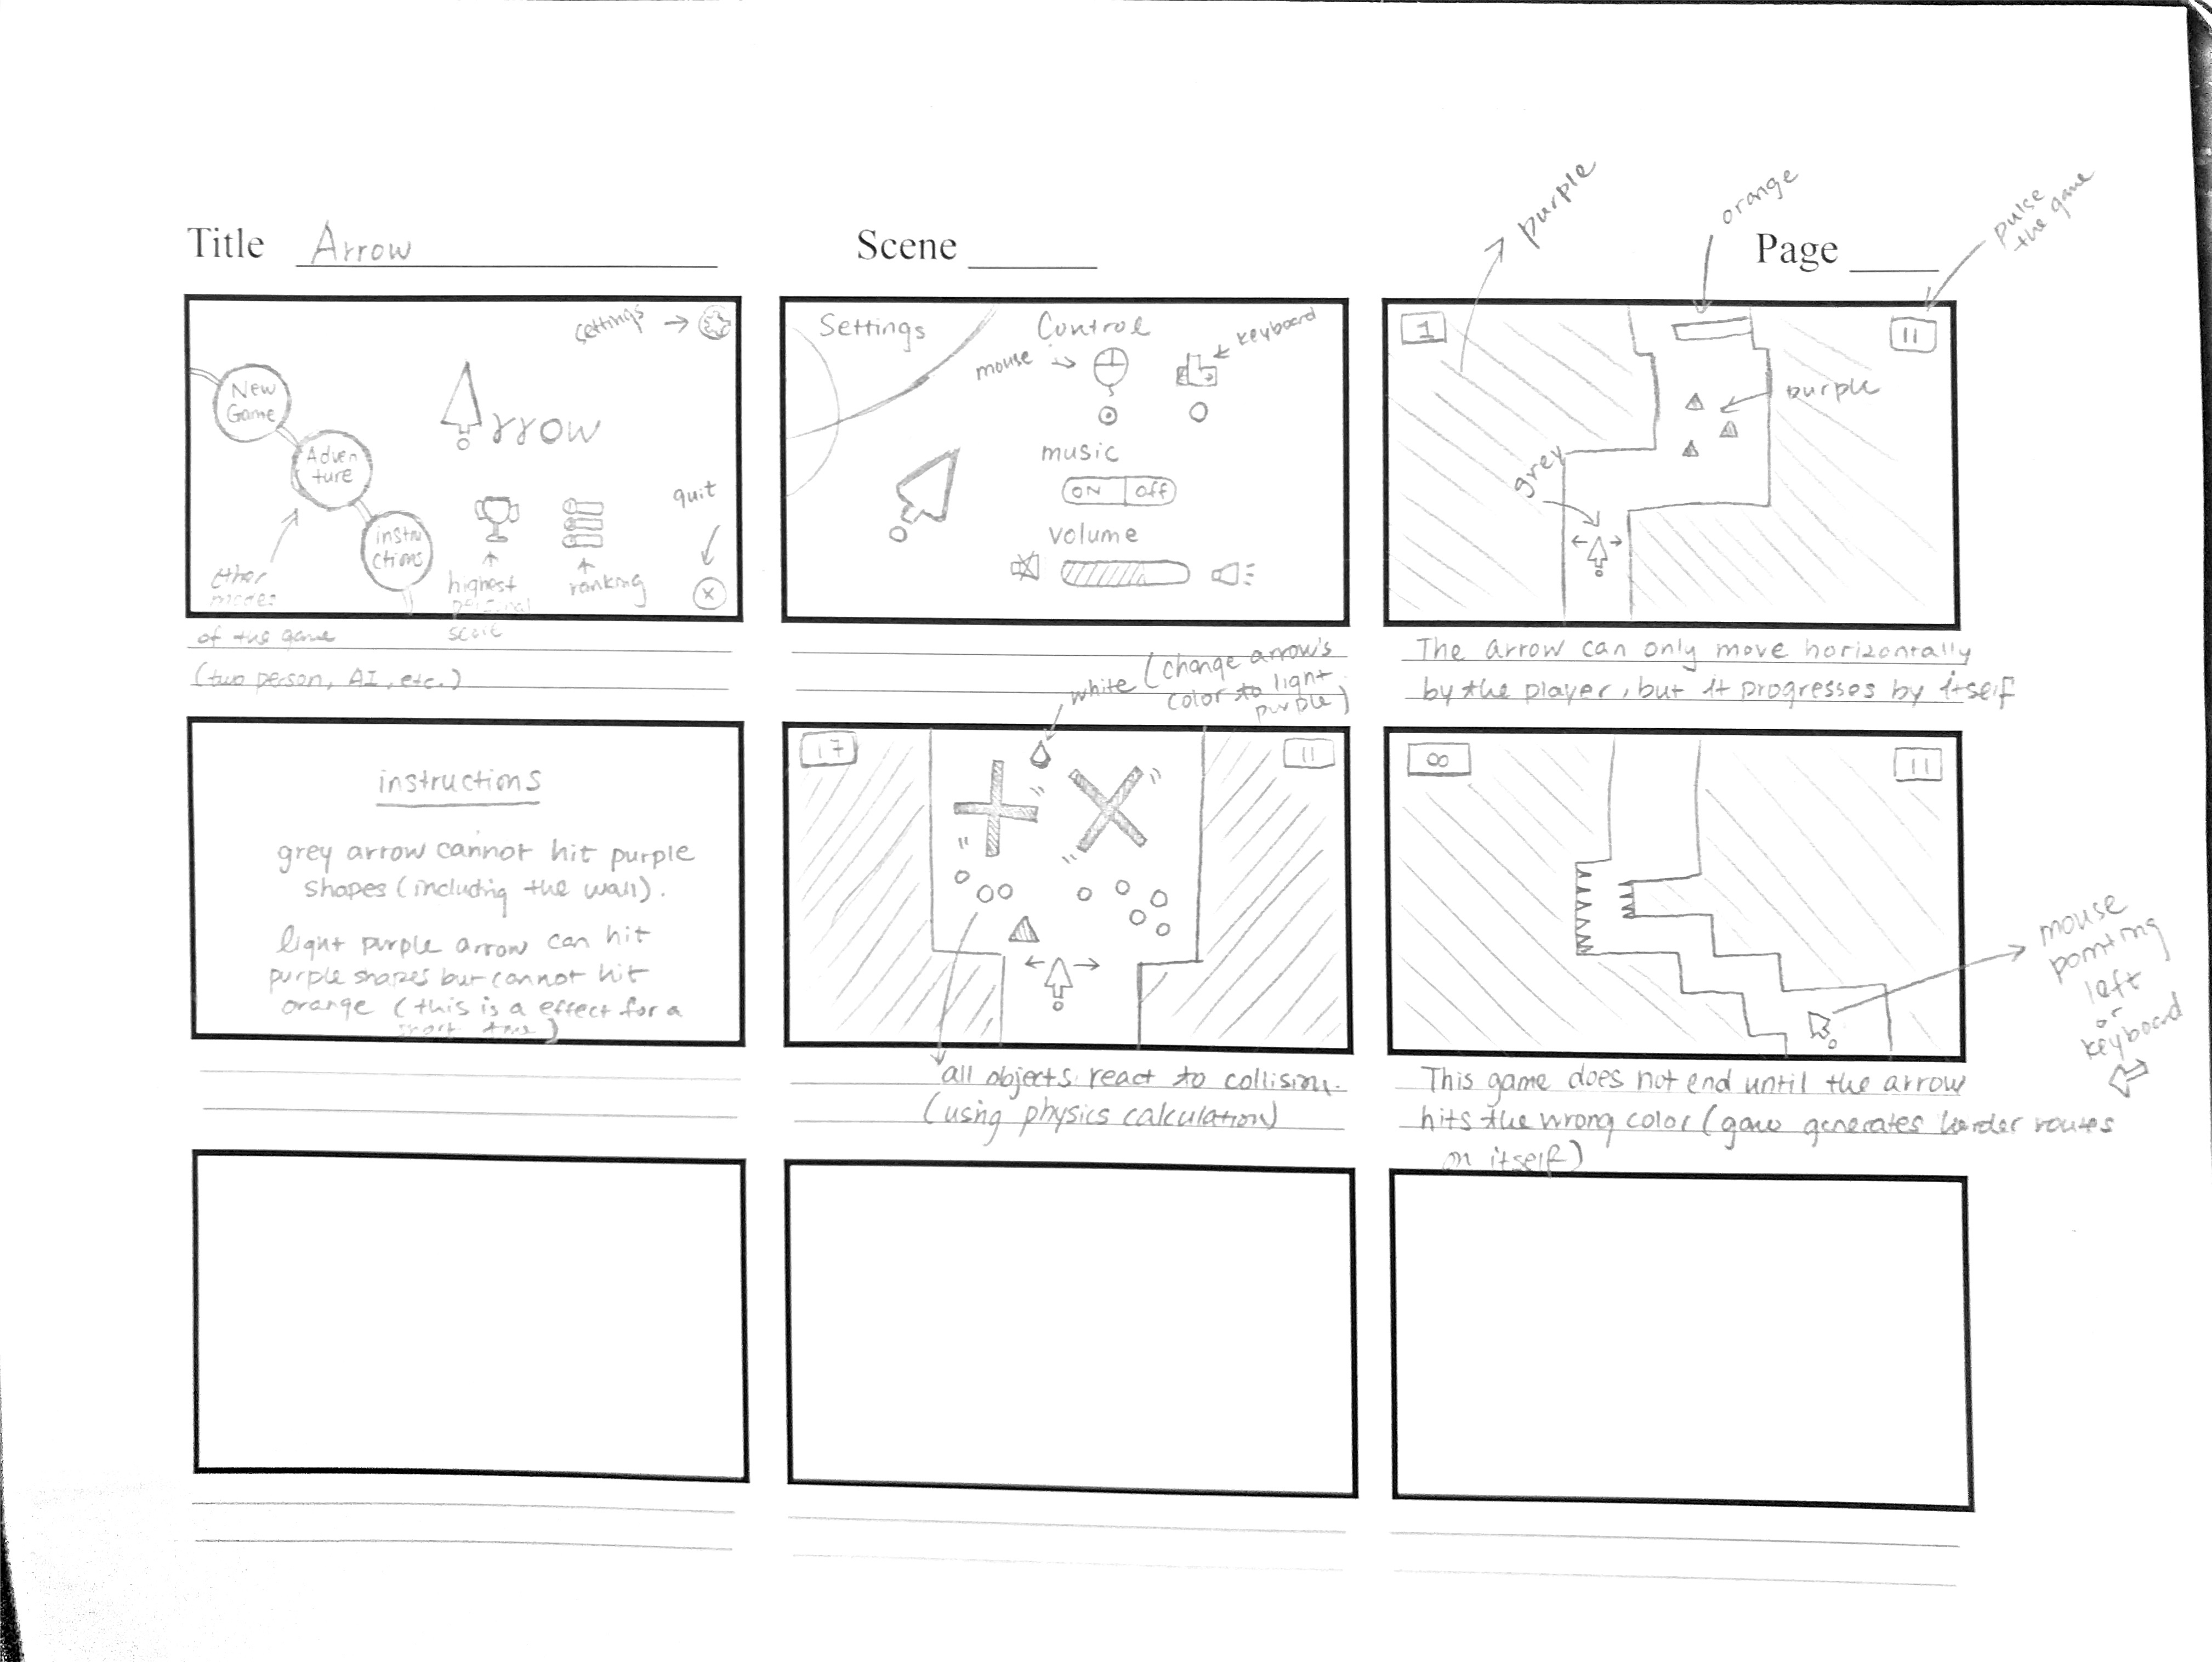 Title Arrow
Scene
Page
purple
orange
pulse
the game
settings
New
Game
Adven
ture
instru
ctions
Arrow
quit
x
other
modes
of the game
(two person, AI, etc.)
highest
personal
score
ranking
Settings
Control
mouse
keyboard
music
ON Off
volume
1
11
purple
grey
The arrow can only move horizontally
by the player, but it progresses by itself
instructions
grey arrow cannot hit purple
shapes (including the wall).
light purple arrow can hit
purple shapes but cannot hit
orange (this is a effect for a
short time)
white (change arrow's
color to light
purple)
17
11
all objects react to collision.
(using physics calculation)
∞
11
mouse
pointing
left
or
keyboard
This game does not end until the arrow
hits the wrong color (game generates harder routes
on itself)